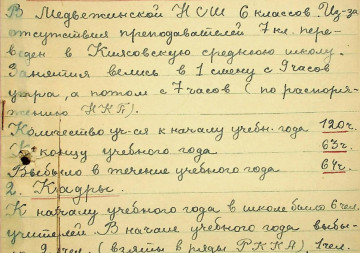 В Медвеженской НСШ 6 классов. Из-за
отсутствия преподавателей 7 кл. пере-
веден в Киясовскую среднюю школу.
Занятия велись в 1 смену с 9 часов
утра, а потом с 7 часов (по распоря-
жению НКП).
Количество уч-ся к началу учебн. года 120ч.
К концу учебного года 63ч.
Выбыло в течение учебного года 64ч.
2. Кадры.
К началу учебного года в школе было 6 чел.
учителей. В начале учебного года выбы-
2 чел. (взяты в ряды РККА), 1 чел.